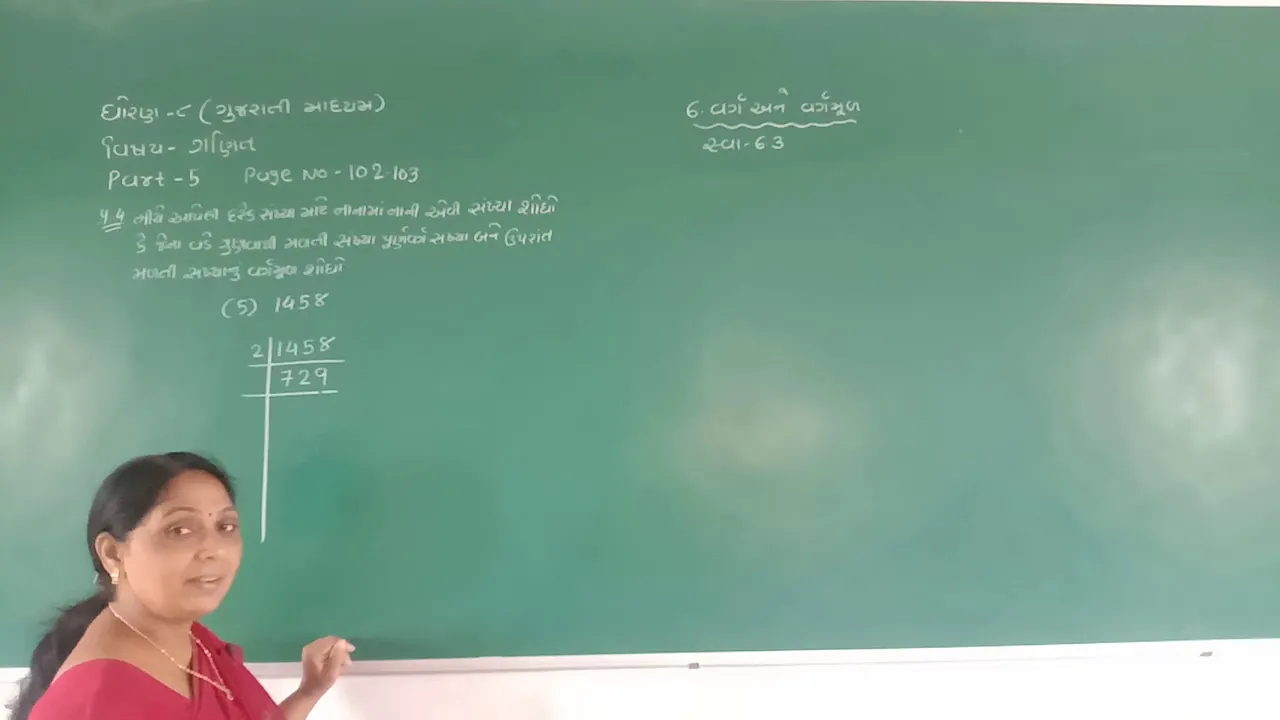 ધોરણ - ૮ (ગુજરાતી માધ્યમ)
વિષય - ગણિત
Part - 5 Page No - 102.103
પ્ર.4 નીચે આપેલી દરેક સંખ્યા માટે નાનામાં નાની એવી સંખ્યા શોધો
કે જેના વડે ગુણવાથી મળતી સંખ્યા પૂર્ણવર્ગ સંખ્યા બને ઉપરાંત
મળતી સંખ્યાનું વર્ગમૂળ શોધો
(5) 1458
2 1458
729
6. વર્ગ અને વર્ગમૂળ
સ્વા - 6 3